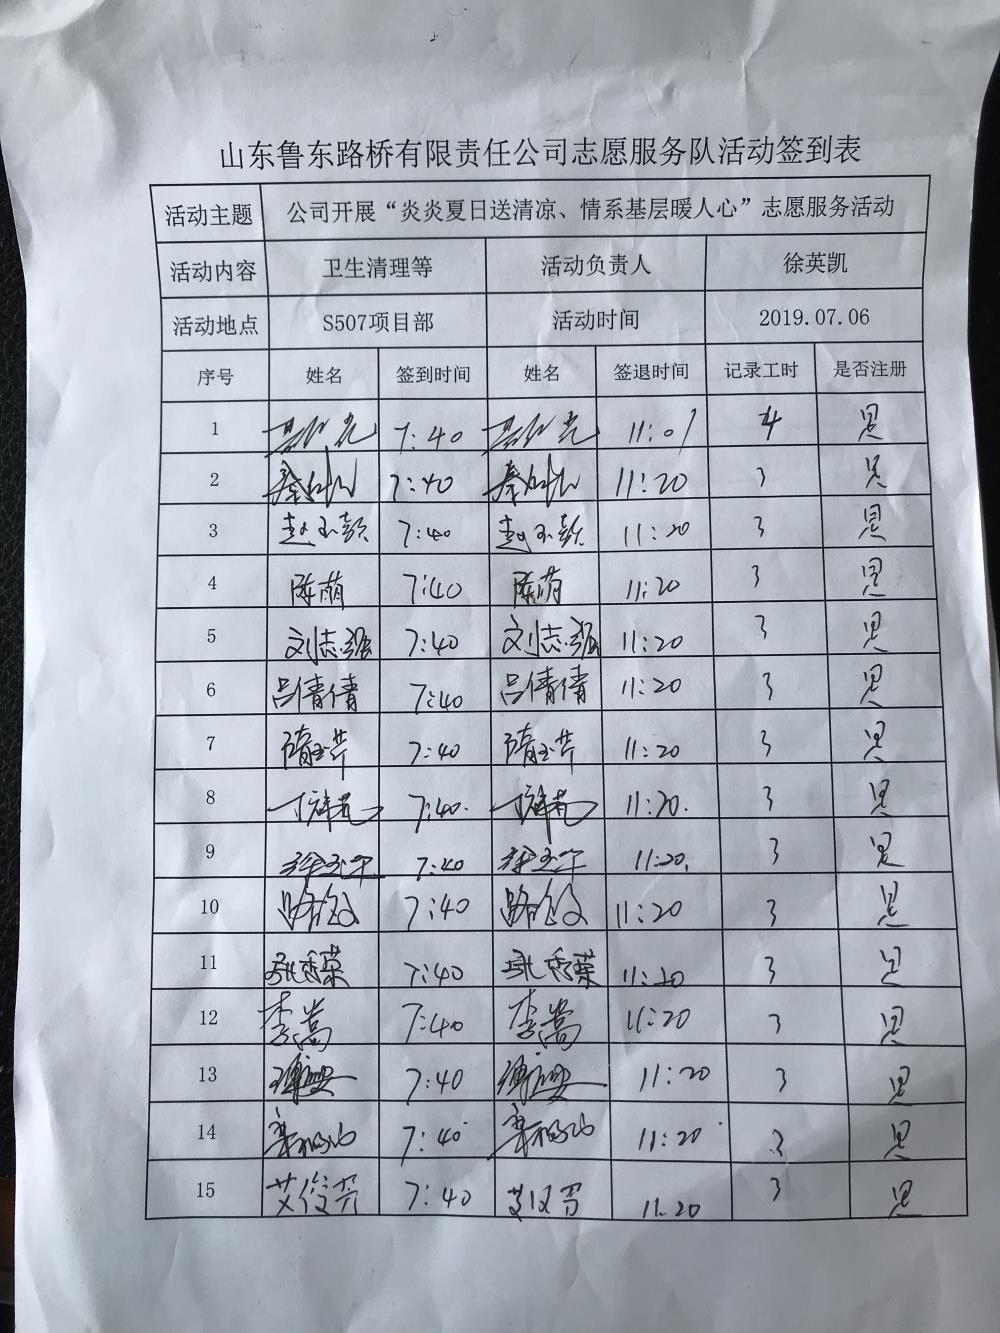 山东鲁东路桥有限责任公司志愿服务队活动签到表
活动主题 公司开展“炎炎夏日送清凉、情系基层暖人心”志愿服务活动
活动内容 卫生清理等 活动负责人 徐英凯
活动地点 S507项目部 活动时间 2019.07.06
序号 姓名 签到时间 姓名 签退时间 记录工时 是否注册
1 7:40 11:01 4 是
2 7:40 11:20 3 是
3 7:40 11:20 3 是
4 陈萌 7:40 陈萌 11:20 3 是
5 刘志强 7:40 刘志强 11:20 3 是
6 吕倩倩 7:40 吕倩倩 11:20 3 是
7 隋玉芹 7:40 隋玉芹 11:20 3 是
8 7:40. 11:20. 3 是
9 7:40 11:20. 3 是
10 7:40 11:20 3 是
11 张秀荣 7:40 张秀荣 11:20 3 是
12 李嵩 7:40 李嵩 11:20 3 是
13 7:40 11:20 3 是
14 7:40 11:20 3 是
15 7:40 11:20 3 是